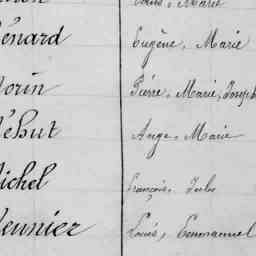 Marie
énard Eugène, Marie
orin Pierre, Marie, Joseph
éhut Ange, Marie
ichel François, Jules
eunier Louis, Emmanuel